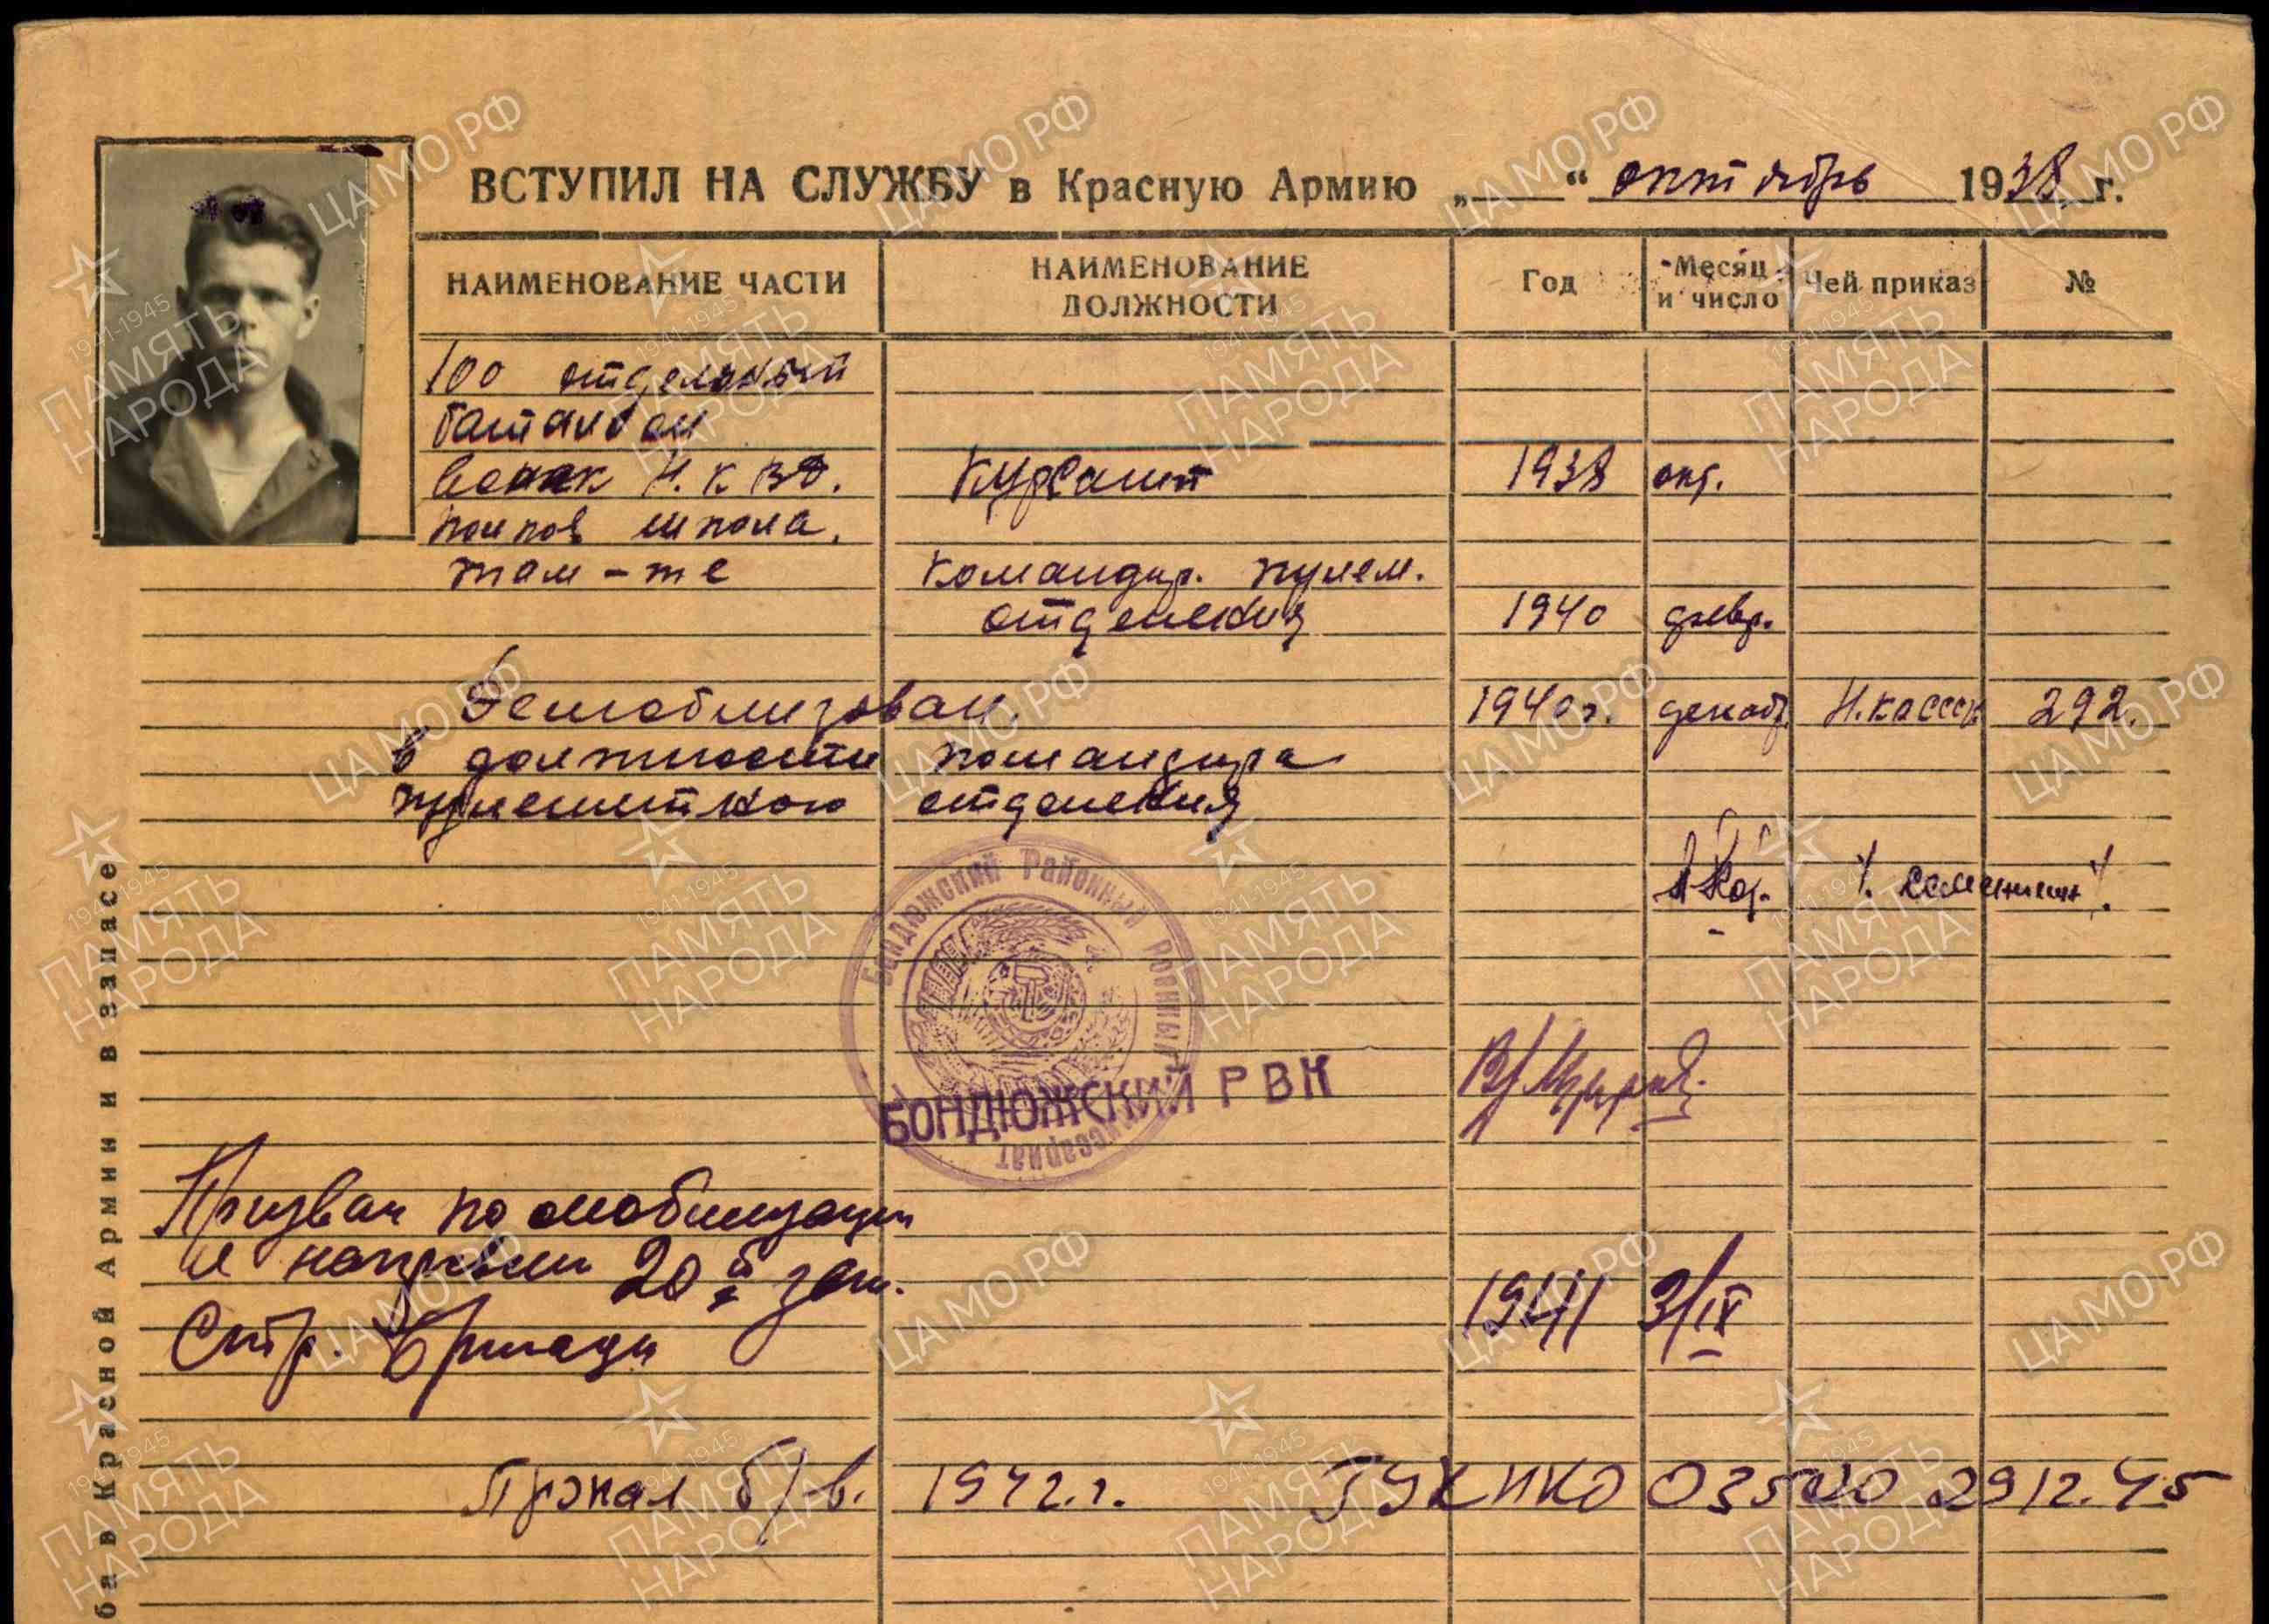 ВСТУПИЛ НА СЛУЖБУ в Красную Армию „ “ октябрь 1938 г.
НАИМЕНОВАНИЕ ЧАСТИ НАИМЕНОВАНИЕ ДОЛЖНОСТИ Год Месяц и число Чей приказ №
100 отдельный
баталион
войск Н.К.ВД. Курсант 1938 окт.
полков школа.
там-же командир. пулем.
отделения 1940 февр.
Демобилизован. 1940г. декабр. 292.
в должности командира
пулеметного отделения
Бондюжский Районный Военный Комиссариат
БОНДЮЖСКИЙ РВК
Призван по мобилизации
и направлен 20й зап.
Стр. бригады 1941 3/IX
Пропал б/в. 1942.г. ГУК НКО 03500 29 12.45
ба в Красной Армии и в запасе
ЦАМО.РФ
1941-1945
ПАМЯТЬ
НАРОДА